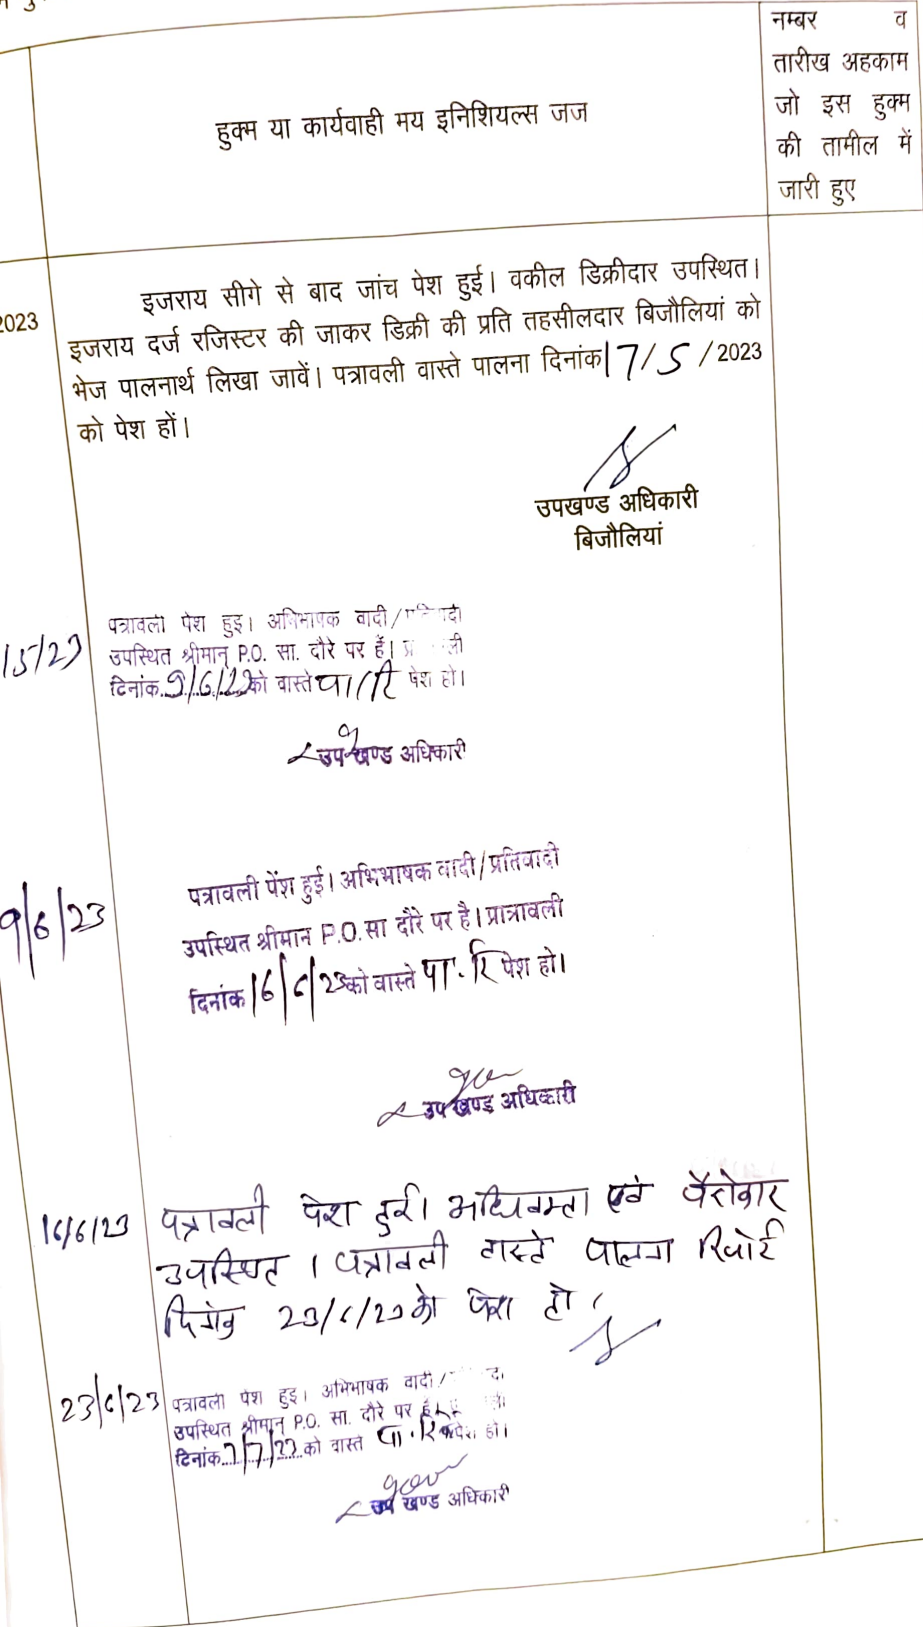 हुक्म या कार्यवाही मय इनिशियल्स जज
नम्बर व
तारीख अहकाम
जो इस हुक्म
की तामील में
जारी हुए
2023
इजराय सीगे से बाद जांच पेश हुई। वकील डिक्रीदार उपस्थित।
इजराय दर्ज रजिस्टर की जाकर डिक्री की प्रति तहसीलदार बिजौलियां को
भेज पालनार्थ लिखा जावें। पत्रावली वास्ते पालना दिनांक 17/5/2023
को पेश हों।
उपखण्ड अधिकारी
बिजौलियां
/5/23
पत्रावली पेश हुइ। अभिभाषक वादी/
उपस्थित श्रीमान् P.O. सा. दौरे पर हैं।
दिनांक 9/6/23 को वास्ते पा.रि पेश हो।
उप खण्ड अधिकारी
9/6/23
पत्रावली पेंश हुई। अभिभाषक वादी/प्रतिवादी
उपस्थित श्रीमान P.O. सा दौरे पर है। प्रात्रावली
दिनांक 16/6/23 को वास्ते पा. रि पेश हो।
उप खण्ड अधिकारी
16/6/23
पत्रावली पेश हुई। अधिवक्ता एवं
उपस्थित। पत्रावली वास्ते पालना रिपोर्ट
दिनांक 23/6/23 को पेश हो।
23/6/23
पत्रावली पेश हुइ। अभिभाषक वादी/
उपस्थित श्रीमान् P.O. सा. दौरे पर
दिनांक 7/7/23 को वास्ते पा. रि पेश हो।
उप खण्ड अधिकारी